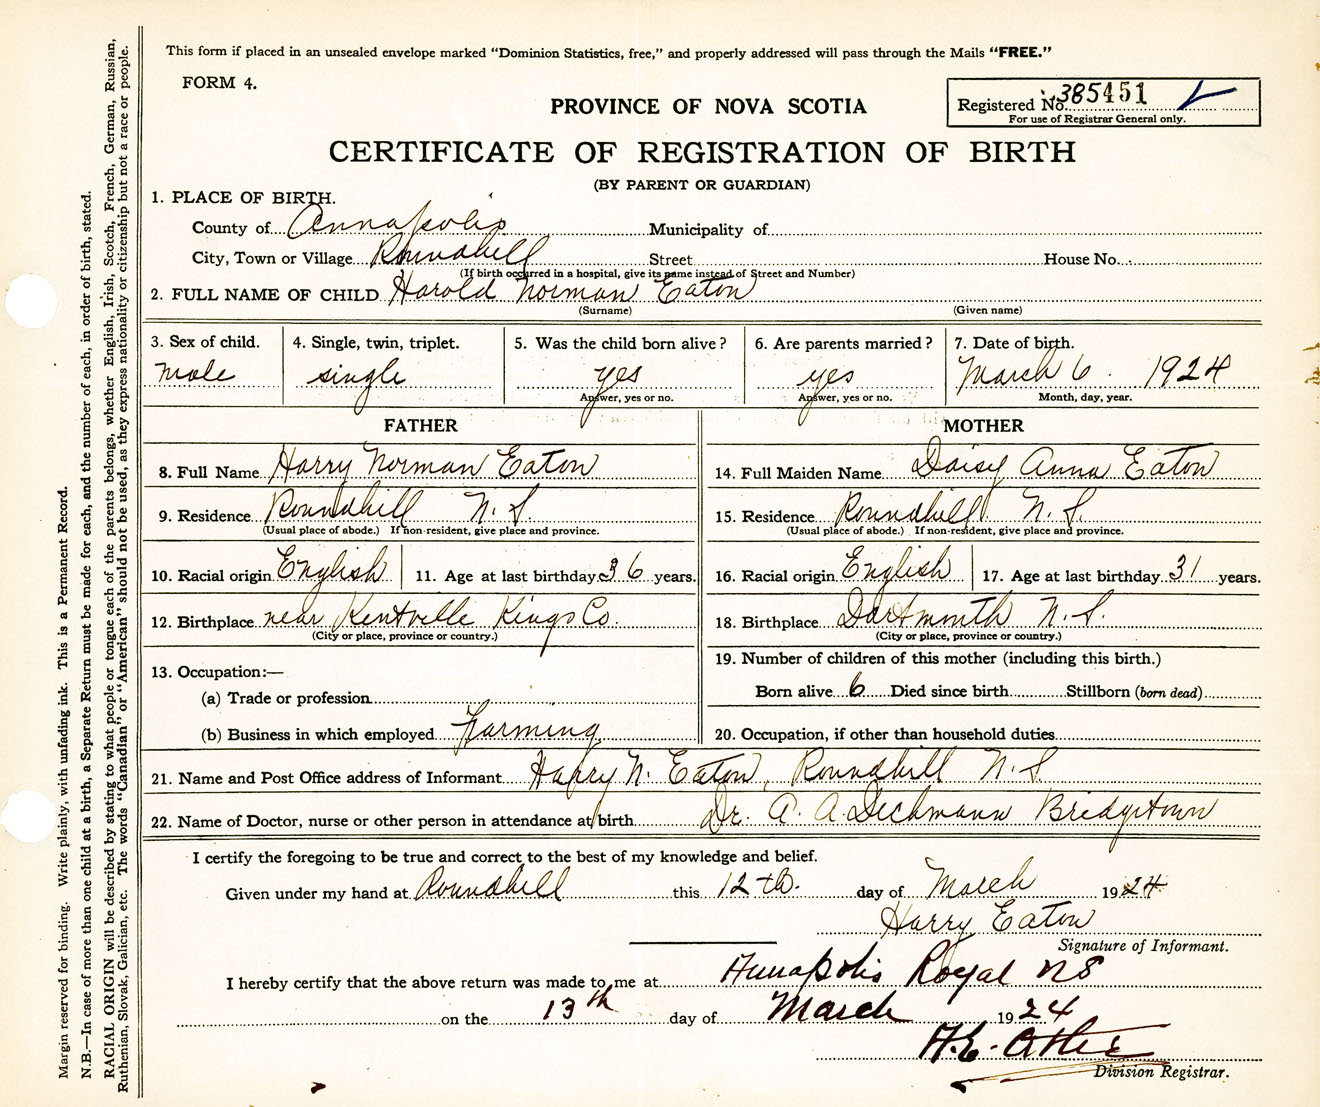 This form if placed in an unsealed envelope marked "Dominion Statistics, free," and properly addressed will pass through the Mails "FREE."
FORM 4.
Registered No. 385451
For use of Registrar General only.
PROVINCE OF NOVA SCOTIA
CERTIFICATE OF REGISTRATION OF BIRTH
(BY PARENT OR GUARDIAN)
1. PLACE OF BIRTH.
County of Annapolis Municipality of
City, Town or Village Roundhill Street House No.
(If birth occurred in a hospital, give its name instead of Street and Number)
2. FULL NAME OF CHILD Harold Norman Eaton
(Surname) (Given name)
3. Sex of child. 4. Single, twin, triplet. 5. Was the child born alive? 6. Are parents married? 7. Date of birth.
Male single yes yes March 6. 1924
Answer, yes or no. Answer, yes or no. Month, day, year.
FATHER
8. Full Name Harry Norman Eaton
9. Residence Roundhill N.S.
(Usual place of abode.) If non-resident, give place and province.
10. Racial origin English 11. Age at last birthday 36 years.
12. Birthplace near Kentville Kings Co.
(City or place, province or country.)
13. Occupation:—
(a) Trade or profession
(b) Business in which employed Farming
MOTHER
14. Full Maiden Name Daisy Anna Eaton
15. Residence Roundhill N.S.
(Usual place of abode.) If non-resident, give place and province.
16. Racial origin English 17. Age at last birthday 31 years.
18. Birthplace Dartmouth N.S.
(City or place, province or country.)
19. Number of children of this mother (including this birth.)
Born alive 6 Died since birth Stillborn (born dead)
20. Occupation, if other than household duties
21. Name and Post Office address of Informant Harry N. Eaton, Roundhill N.S.
22. Name of Doctor, nurse or other person in attendance at birth Dr. A. A. Dechmann Bridgetown
I certify the foregoing to be true and correct to the best of my knowledge and belief.
Given under my hand at Roundhill this 12th. day of March 1924
Harry Eaton
Signature of Informant.
I hereby certify that the above return was made to me at Annapolis Royal NS
on the 13th day of March 1924
Division Registrar.
Margin reserved for binding. Write plainly, with unfading ink. This is a Permanent Record.
N.B.—In case of more than one child at a birth, a Separate Return must be made for each, and the number of each, in order of birth, stated.
RACIAL ORIGIN will be described by stating to what people or tongue each of the parents belongs, whether English, Irish, Scotch, French, German, Russian,
Ruthenian, Slovak, Galician, etc. The words "Canadian" or "American" should not be used, as they express nationality or citizenship but not a race or people.